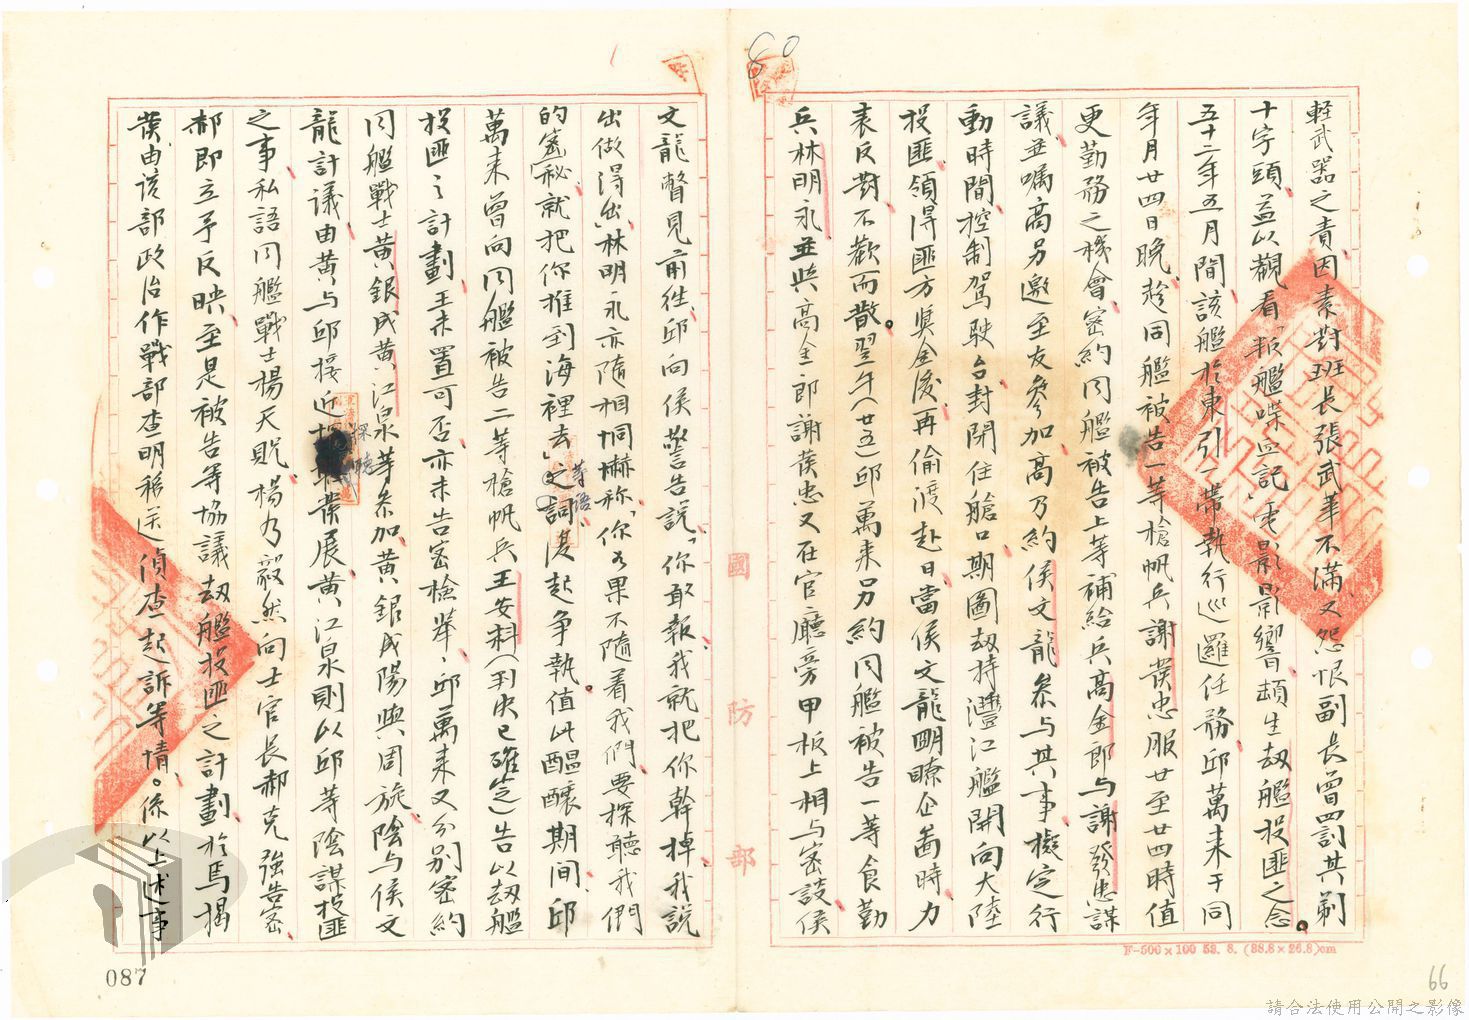 80
輕武器之責因素對班長張武華不滿又怨恨副長曾四罰其剃
十字頭益以觀看「叛艦喋血記」電影影響頗生劫艦投匪之念。
五十二年五月間該艦於東引一帶執行巡邏任務邱萬来于同
年月廿四日晚趁同艦被告一等槍帆兵謝發忠服廿至廿四時值
更勤務之機會密約同艦被告上等補給兵高金郎与謝發忠謀
議並囑高另邀至友參加高乃約侯文龍參与其事擬定行
動時間控制駕駛台封閉住艙口期圖劫持灃江艦開向大陸
投匪領得匪方奬金後再偷渡赴日當侯文龍明瞭企圖時力
表反對不歡而散。翌午(廿五)邱萬来另約同艦被告一等食勤
兵林明永並與高金郎謝發忠又在官廳旁甲板上相与密談侯
文龍瞥見前往邱向侯警告説「你敢報我就把你幹掉我說
出做得出」林明永亦隨相恫嚇称「你如果不隨着我們要探聽我們
的秘密就把你推到海裡去」等語之詞復起争執值此醞釀期間邱
萬来曾向同艦被告二等槍帆兵王安科(判决已確定)告以劫艦
投匪之計劃王未置可否亦未告密檢举、邱萬来又分别密約
同艦戰士黃銀成黃江泉等參加黃銀成陽與周旋陰与侯文
龍計議由黃与邱接近探聽發展黃江泉則以邱等陰謀投匪
之事私語同艦戰士楊天貺楊乃毅然向士官長郝克強告密
郝即立予反映至是被告等協議劫艦投匪之計劃於焉揭
發由該部政治作戰部查明移送偵查起訴等情。係以上述事
國防部
F-500×100 53. 8. (38.8×26.8)cm
087
66
請合法使用公開之影像